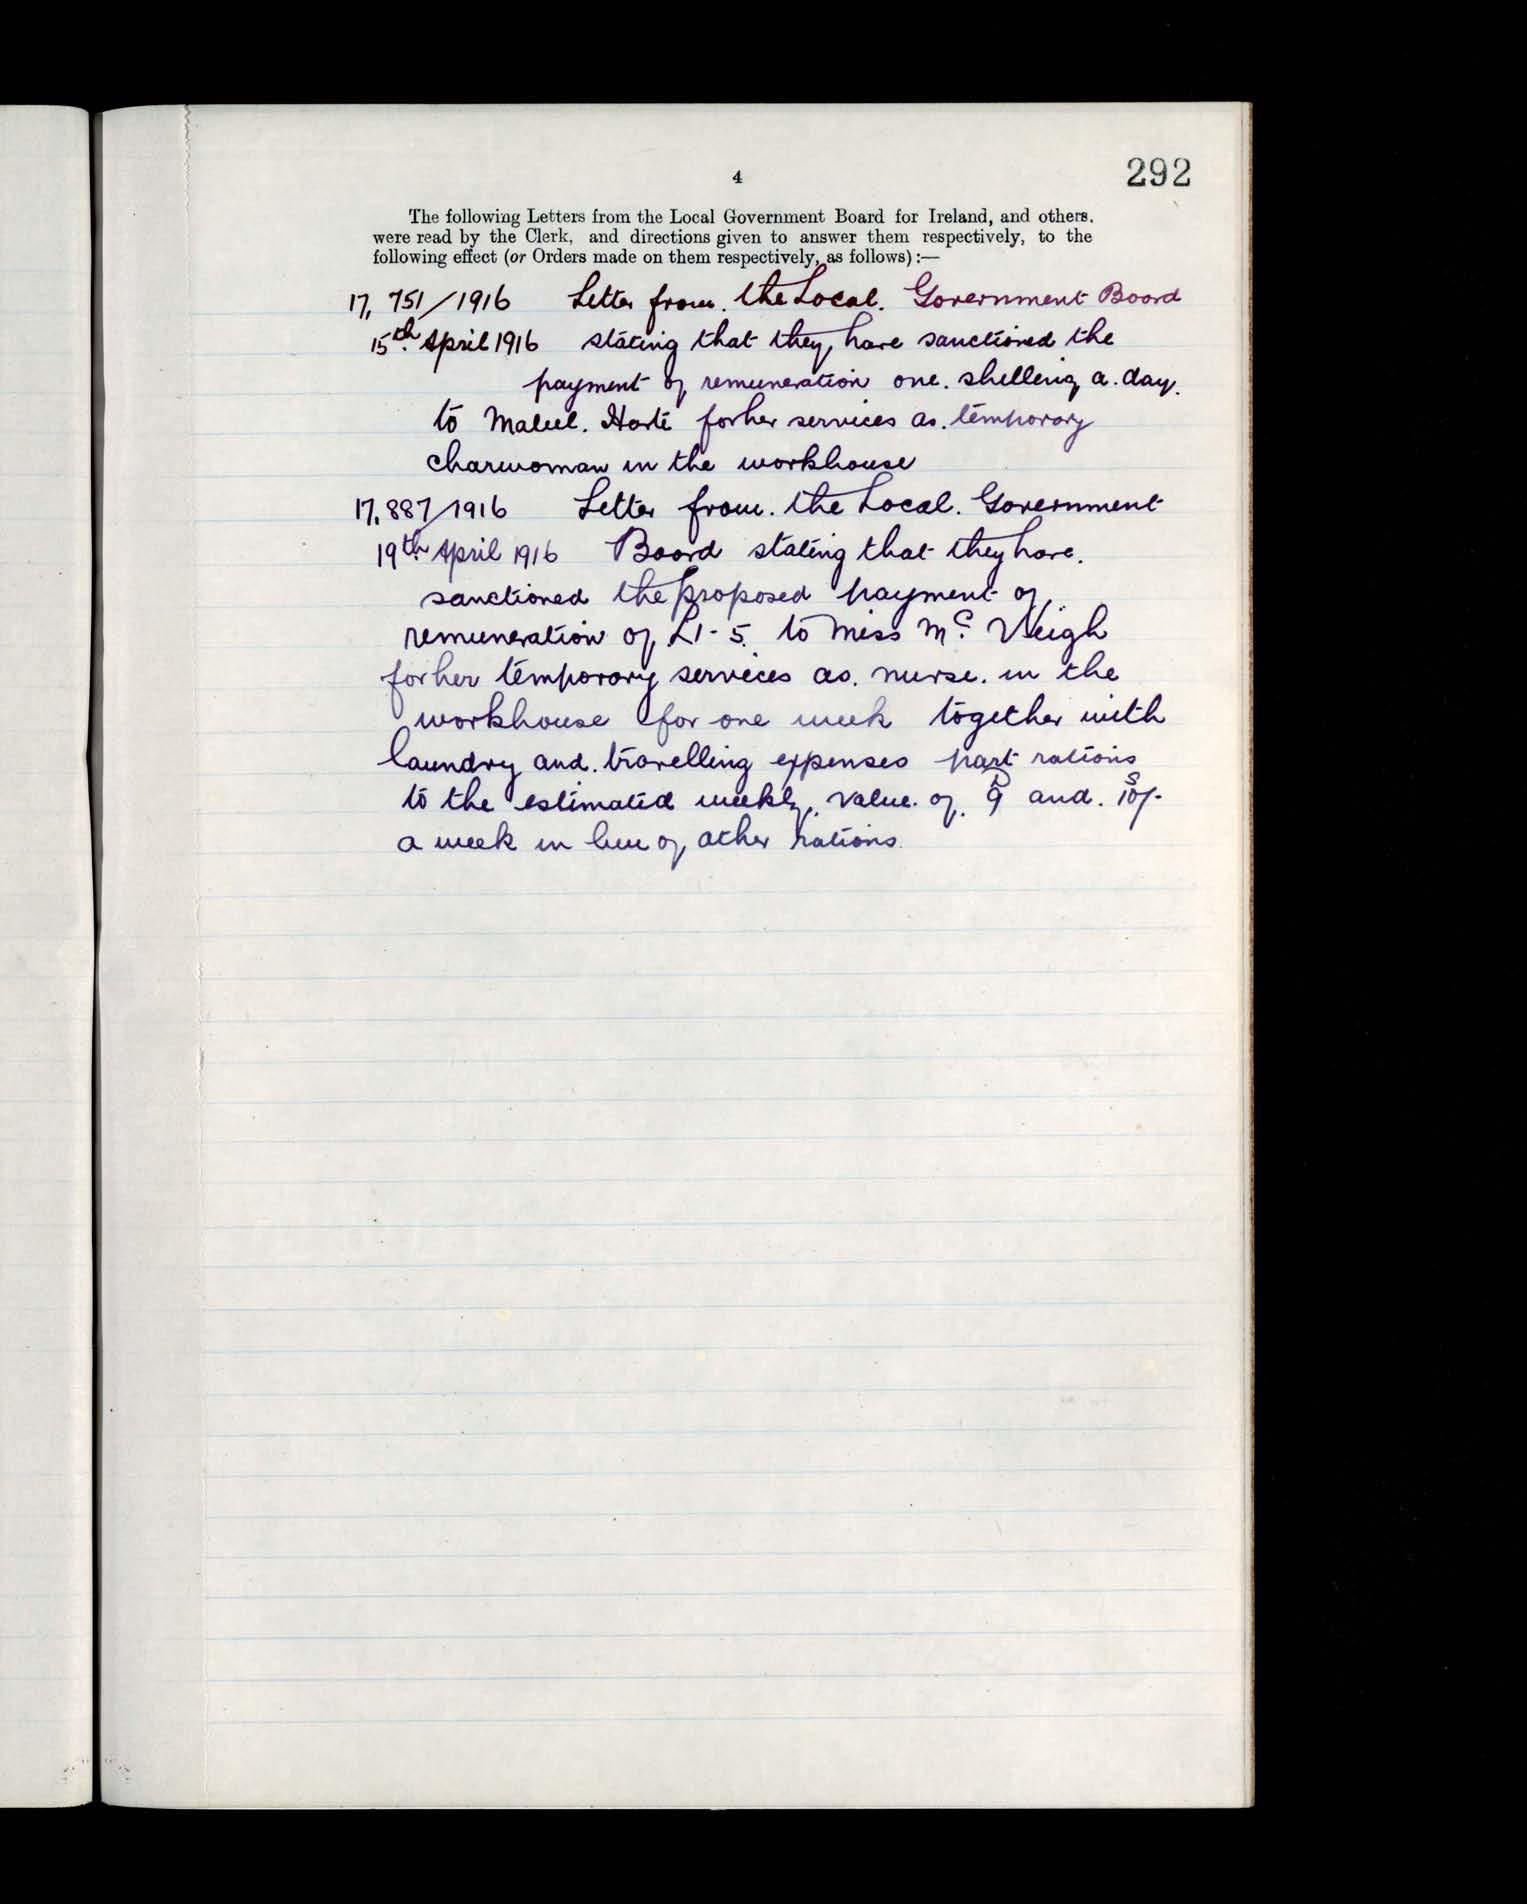 292
4
The following Letters from the Local Government Board for Ireland, and others.
were read by the Clerk, and directions given to answer them respectively, to the
following effect (or Orders made on them respectively, as follows):—
17,751/1916 Letter from. the Local. Government Board
15th April 1916 stating that they have sanctioned the
payment of remuneration one. shelling a. day.
to Mabel. Harte for her services as. temporary
charwoman in the workhouse
17,887/1916 Letter from. the Local. Government
19th April 1916 Board stating that they have.
sanctioned the proposed payment of
remuneration of £1-5. to Miss McVeigh
for her temporary services as. nurse. in the
workhouse for one week together with
laundry and. travelling expenses part rations
to the estimated weekly, value. of. 9D and. 10S/-
a week in lieu of other rations.